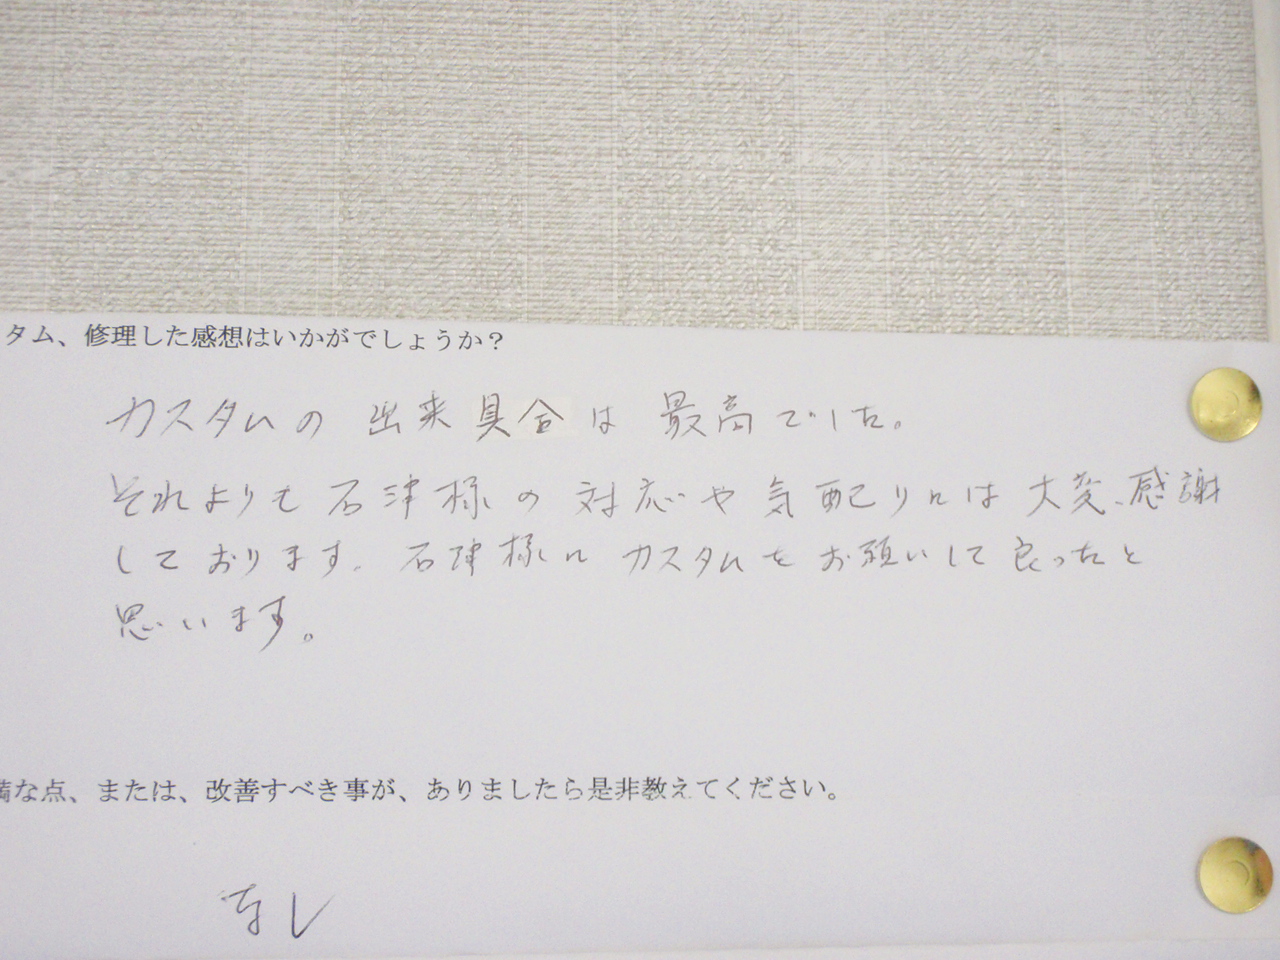 タム、修理した感想はいかがでしょうか？
カスタムの出来具合は最高でした。
それよりも石津様の対応や気配りには大変、感謝
しております。石津様にカスタムをお願いして良ったと
思います。
満な点、または、改善すべき事が、ありましたら是非教えてください。
なし